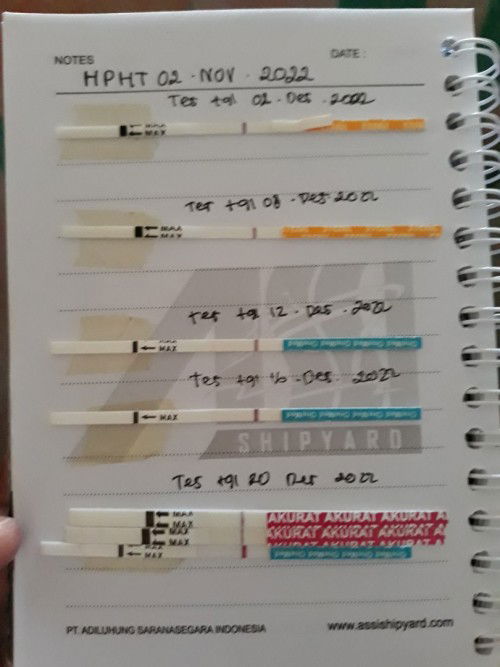 NOTES DATE :
HPHT 02 - NOV - 2022
Tes tgl 02 - Des - 2022
MAX
MAX
Tes tgl 08 - Des 2022
MAX
MAX
Tes tgl 12 - Des - 2022
MAX
OneMed OneMed OneMed OneMed
Tes tgl 16 - Des - 2022
MAX
OneMed OneMed OneMed OneMed
SHIPYARD
Tes tgl 20 Des 2022
MAX AKURAT AKURAT AKURAT
MAX AKURAT AKURAT AKURAT
MAX
MAX OneMed OneMed OneMed
PT. ADILUHUNG SARANASEGARA INDONESIA www.assishipyard.com